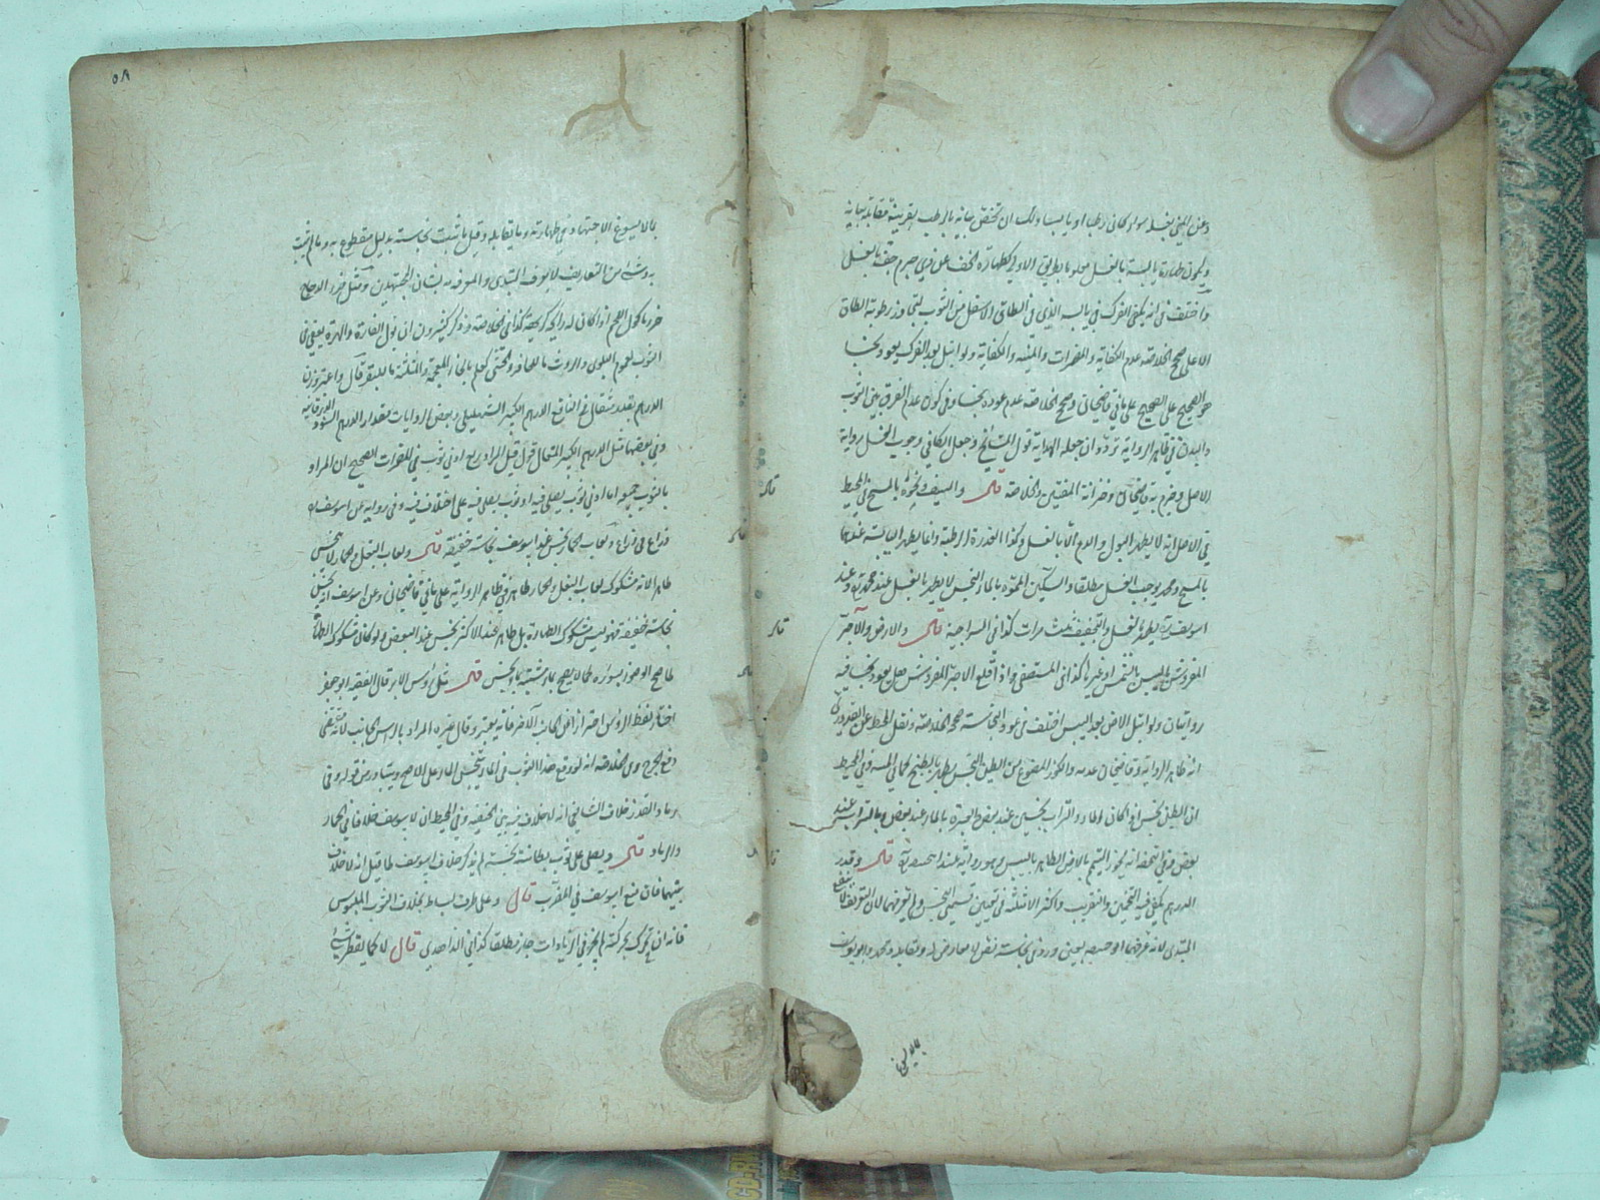 وعن المني بغسله سواء كان رطبا او يابسا ولك ان تخص بيانه بالرطب بقرينة مقابله بيانه
ويكون طهارة يابسه بالغسل معلوما بطريق الاولى كطهارة الخف عن ذي جرم جف بالغسل
واختلف في انه يكفي الفرك في يابسه الذي في الطاق الاسفل من الثوب لتجاوز رطوبة الطاق
الاعلى صحح الخلاصة عدم الكفاية والمضمرات والمنية والكفاية ولو ابتل بعد الفرك يعود نجسا
هو الصحيح على الصحيح على ما في قاضيخان وصحح الخلاصة عدم عوده نجسا وفي كون عدم الفرق بين الثوب
والبدن في ظاهر الرواية تردد وان جعله الهداية قول المشايخ وجعل الكافي وجوب الغسل رواية
الاصل وجزم به قاضيخان وخزانة المفتين والخلاصة قال والسيف ونحوه بالمسح في المحيط
في الاصل انه لا يطهر البول والدم الا بالغسل وكذا العذرة الرطبة وانما يطهر اليابسة عندهما
بالمسح ومحمد يوجب الغسل مطلقا والسكين المموه بالماء النجس لا يطهر بالغسل عند محمد وعند
ابو يوسف يطهر بالغسل والتجفيف ثلث مرات كذا في السراجية قال والارض والآجر
المفروش باليبس بالشمس او غيرها كذا في المستصفى واذا قلع الآجر المفروش هل يعود نجسا فيه
روايتان ولو ابتل الارض بعد اليبس اختلف في عود النجاسة صحح الخلاصة ونقل المحيط عن القدوري
انه ظاهر الرواية وقاضيخان عدمه والكوز المصنوع من الطين النجس يطهر بالطبخ كما في المنية وفي المحيط
ان الطين نجس ان كان الماء والتراب نجسين عند بعض والعبرة بالماء عند بعض وبالتراب عند
بعض وفي التحفة انه يجوز التيمم بالارض الطاهر باليبس وهو رواية عند قال وقدر
الدرهم يكفي فيه التخمين والتقريب واكثر الائمة في تعيين قسمي النجس ولم يعرفهما لان التعريف لا ينفع
المبتدي لانه عرفهما ابو حنيفة بمعنى ورد في نجاسته نص لا معارض له وبمقابله ومحمد وابو يوسف
بما لا يسوغ
٥٨
بما لا يسوغ الاجتهاد في طهارته وما يقابله وقيل ما ثبت نجاسته بدليل مقطوع به وما لم يثبت
به وشيء من التعاريف لا يعرف المبتدي والمعرفة به شان المجتهدين ومثل خرء الدجاج
خرء ماكول اللحم اذا كان له رائحة كريهة كذا في الخلاصة وذكر كثيرون ان بول الفارة والهرة يعفى في
الثوب لعموم البلوى والروث ما للحافر والخثى كعلم بالخاء المعجمة والمثلثة ما للبقر قال واعتبر وزن
الدرهم بقدر مثقال ثم البالغ الدرهم الكبير الشهليلي وبعض الروايات مقدار الدرهم السود الزرقانية
وفي بعضها مثل الدرهم الكبير المثقال قوله قيل المراد ربع ادنى ثوب في المضمرات الصحيح ان المراد
بالثوب جميعه اما ادنى ثوب يصلى فيه او ثوب يصلى فيه على اختلاف فيه وفي رواية عن ابو يوسف
ذراع في ذراع ولعاب الحمار نجس عند ابو يوسف نجاسة خفيفة قال ولعاب البغل والحمار لا ينجس
طاهرا لانه مشكوك لعاب البغل والحمار طاهر في ظاهر الرواية على ما في قاضيخان وعن ابو يوسف انه نجس
نجاسة خفيفة فهو ليس مشكوك الطهارة بل طاهر عند الاكثر نجس عند البعض ولو كان مشكوك الطهارة
لما صح الوضوء بسؤره كما لا يصح بماء مشتبه بماء نجس قال مثل رؤس الابر قال الفقيه ابو جعفر
اختار لفظ الرؤس احترازا عن الجانب الآخر فانه يعتبر وقال غيره المراد بالراس الجانب لانه معفى
دفع الحرج وفي الخلاصة انه لو وقع هذا الثوب في الماء تنجس الماء على الاصح ويتبادر من قوله وفي
رماد القذر خلاف الشافعي انه لا خلاف فيه بين الحنفية وفي المحيط ان لابو يوسف خلافا في الحمار
والرماد قال ويصلى على ثوب بطانته نجسة لم يذكر خلاف ابو يوسف لما قيل انه لا خلاف
بينهما فان منع ابو يوسف في المضرب قال وعلى طرف بساط بخلاف الثوب الملبوس
فانه ان تحرك بحركته لم يجز في الزيادات جاز مطلقا كذا في الزاهدي قال لا كما يقطر شيء